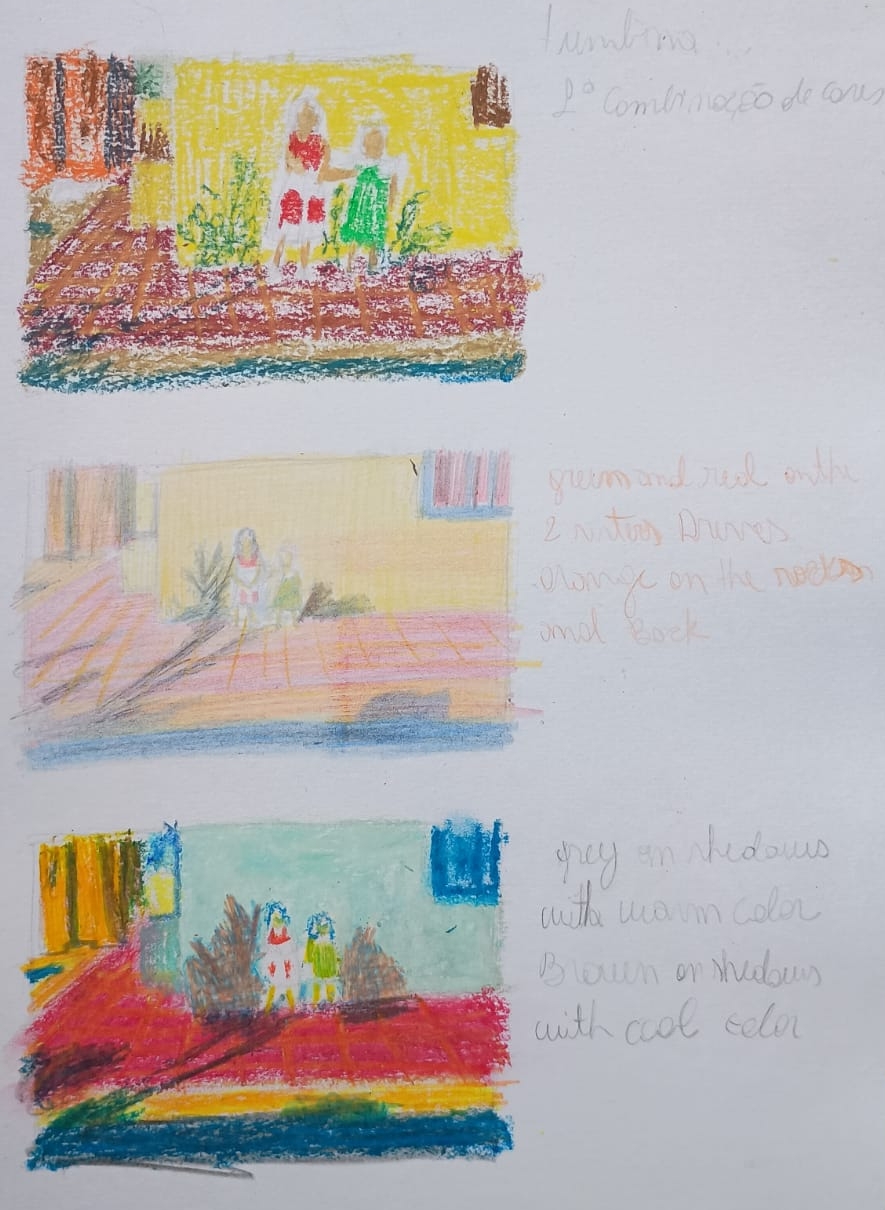 2º Combinação de cores
green and red on the
2 sisters Drives
orange on the rocks
and Back
grey on shedows
with warm color
Brown on shedows
with cool color